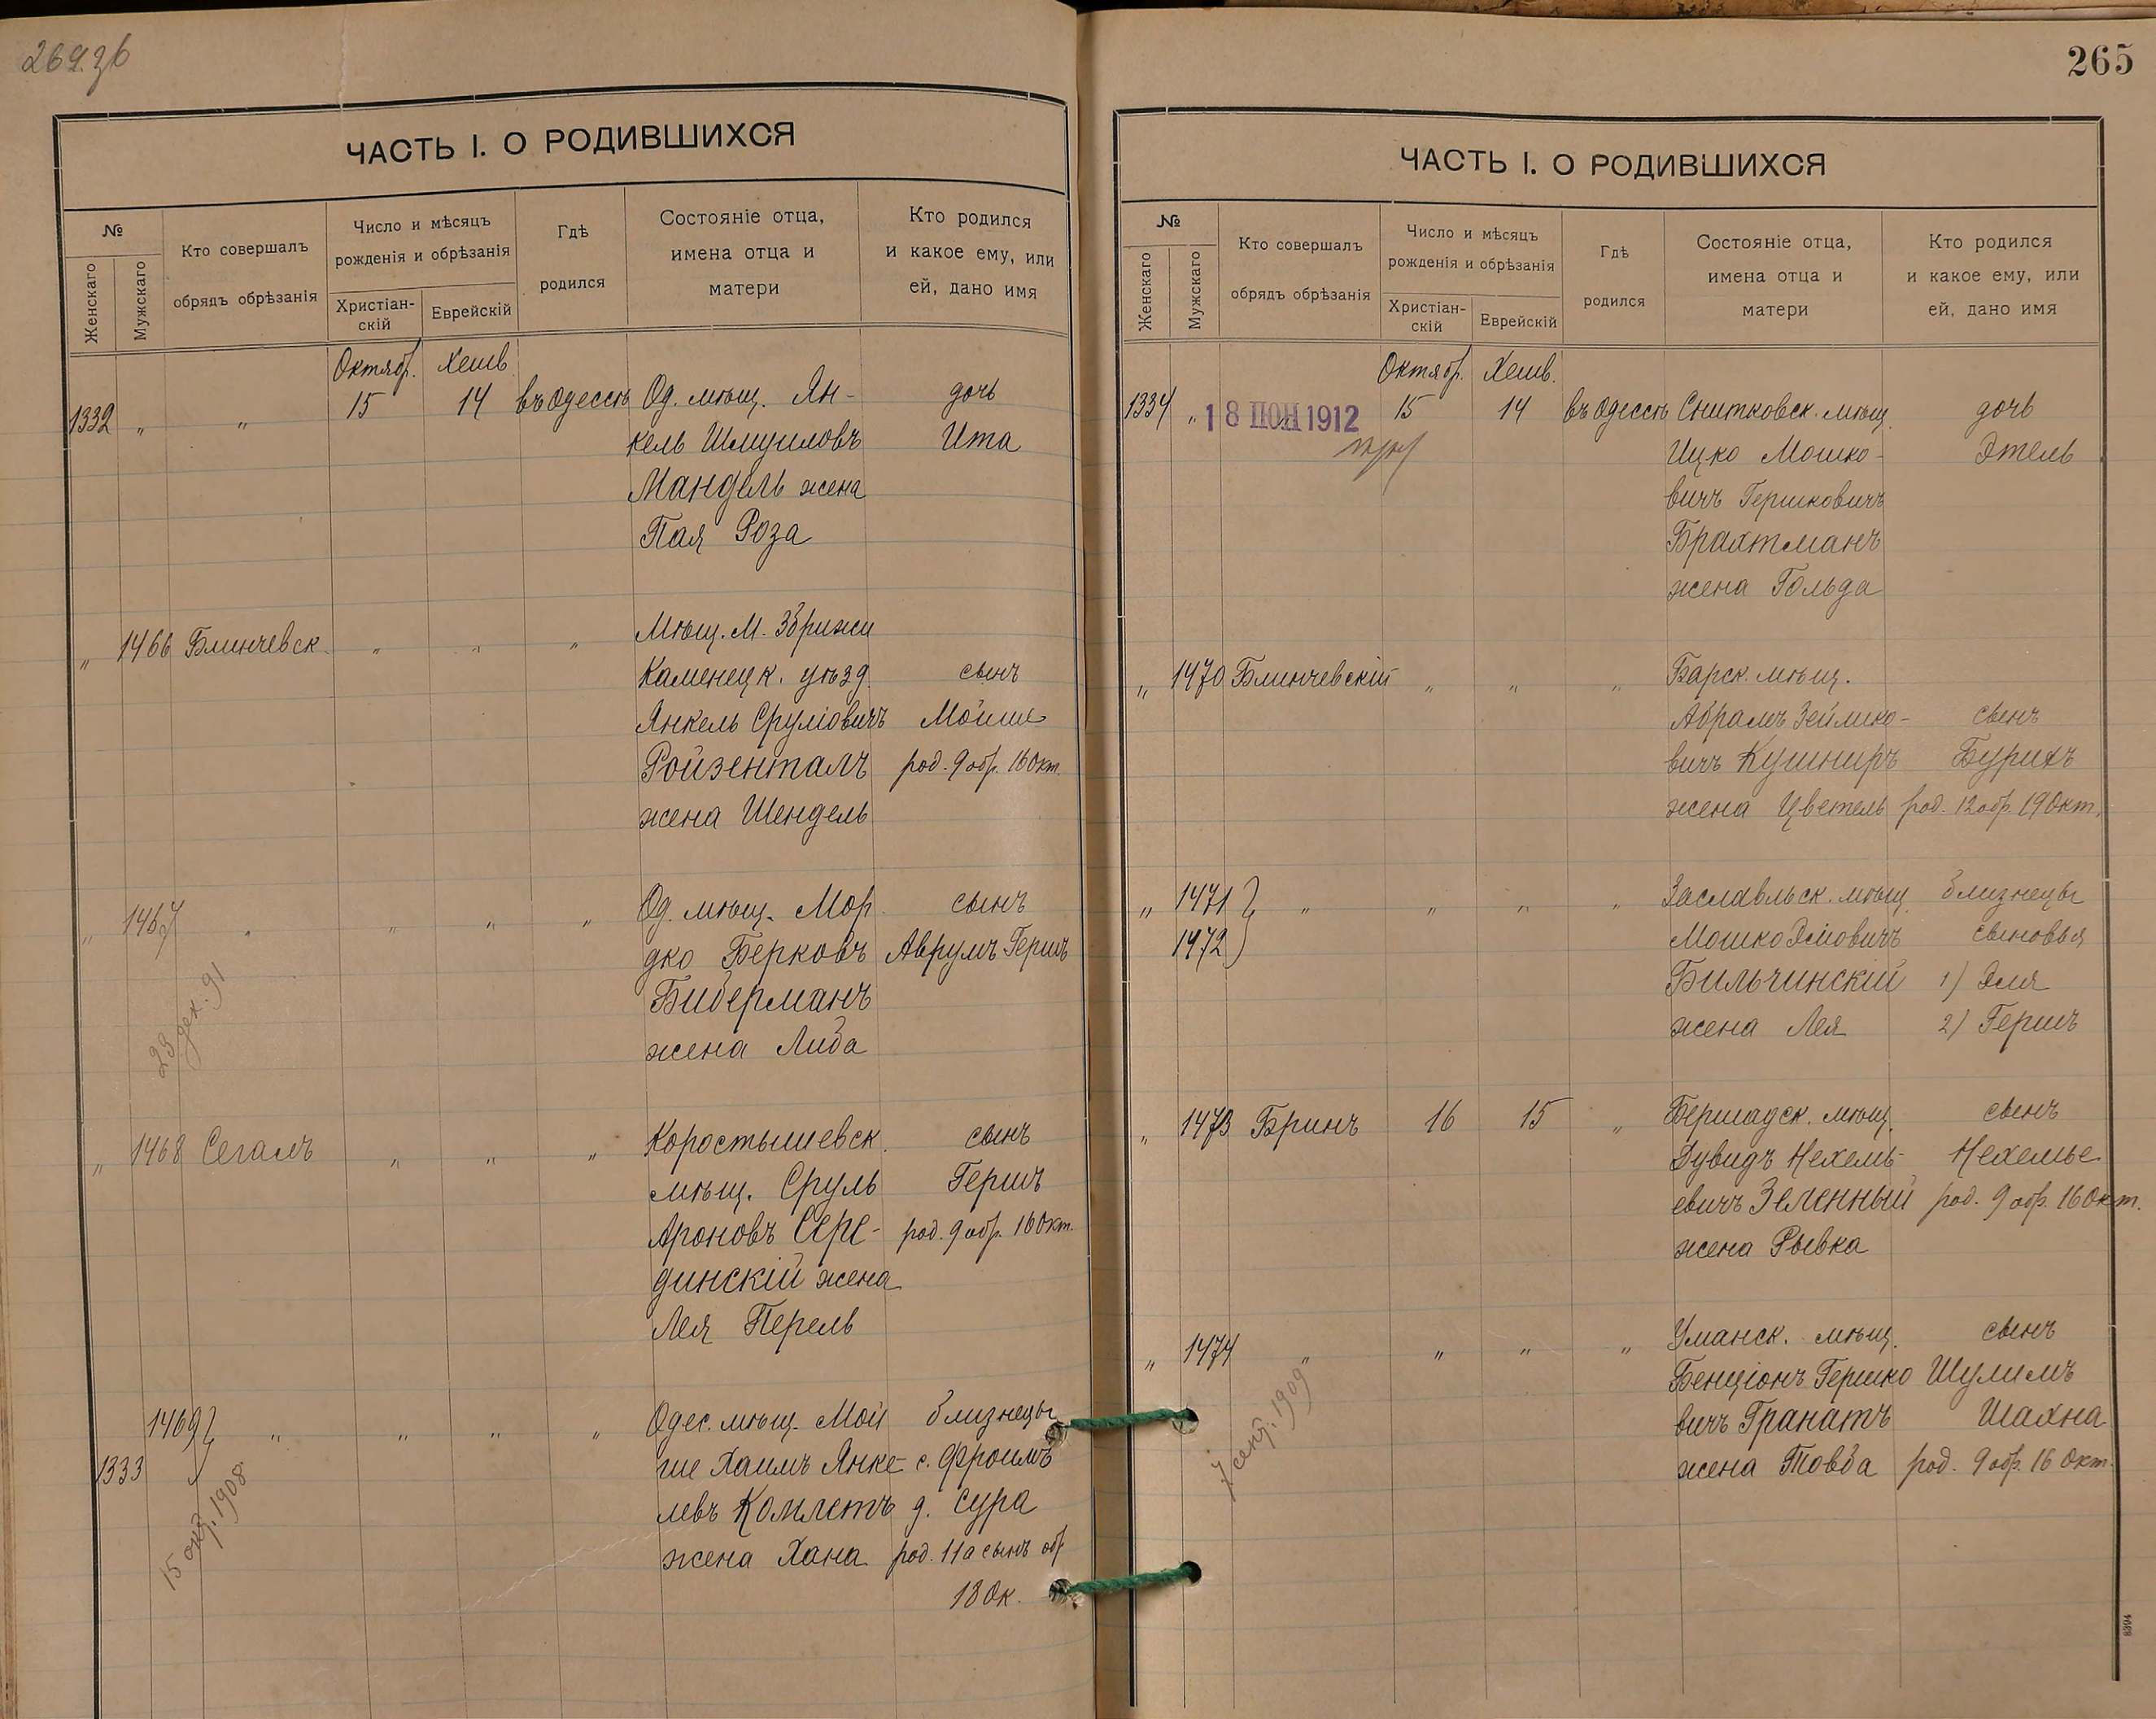 264 зб
ЧАСТЬ I. О РОДИВШИХСЯ
№
Женскаго
Мужскаго
Кто совершалъ
обрядъ обрѣзанія
Число и мѣсяцъ
рожденія и обрѣзанія
Христіан-
скій
Еврейскій
Гдѣ
родился
Состояніе отца,
имена отца и
матери
Кто родился
и какое ему, или
ей, дано имя
Октябр. Хешв.
1332 „ „ 15 14 въ Одессѣ Од. мѣщ. Ян- дочь
кель Шмуиловъ Ита
Мандель жена
Пая Роза
„ 1466 Блинчевск. „ „ „ Мѣщ. м. Збрижи
Каменецк. уѣзд. сынъ
Янкель Сруліовичъ Мойше
Ройзенталъ род. 9 обр. 16 Окт.
жена Шендель
„ 1467 „ „ „ „ Од. мѣщ. Мор сынъ
дко Берковъ Аврумъ Гершъ
Биберманъ
жена Либа
23 дек. 91
„ 1468 Сегалъ „ „ „ Коростышевск. сынъ
мѣщ. Сруль Гершъ
Ароновъ Сере- род. 9 обр. 16 Окт.
динскій жена
Лея Перель
1469 „ „ „ „ Одес. мѣщ. Мой близнецы
1333 ше Хаимъ Янке- с. Фроимъ
левъ Комлетъ д. Сура
жена Хана род. 11 а сынъ обр
18 Ок.
1908
265
ЧАСТЬ I. О РОДИВШИХСЯ
№
Женскаго
Мужскаго
Кто совершалъ
обрядъ обрѣзанія
Число и мѣсяцъ
рожденія и обрѣзанія
Христіан-
скій
Еврейскій
Гдѣ
родился
Состояніе отца,
имена отца и
матери
Кто родился
и какое ему, или
ей, дано имя
Октябр. Хешв.
1334 „ 18 ІЮН 1912 15 14 въ Одессѣ Снитковск. мѣщ. дочь
Ицко Мошко- Этель
вичъ Гершковичъ
Брахтманъ
жена Гольда
„ 1470 Блинчевскій „ „ „ Барск. мѣщ.
Абрамъ Зейлико- сынъ
вичъ Кушниръ Бурихъ
жена Цветель род. 12 обр. 19 Окт.
„ 1471 „ „ „ „ Заславльск. мѣщ. близнецы
1472 Мошко Эліовичъ сыновья
Бильчинскій 1) Эля
жена Лея 2) Гершъ
„ 1473 Бринъ 16 15 „ Бершадск. мѣщ. сынъ
Дувидъ Нехемь- Нехемье
евичъ Зеленный род. 9 обр. 16 Окт.
жена Рывка
„ 1474 „ „ „ „ Уманск. мѣщ. сынъ
Бенціонъ Гершко Шулимъ
вичъ Гранатъ Шахна
жена Товба род. 9 обр. 16 Окт.
1909
8394